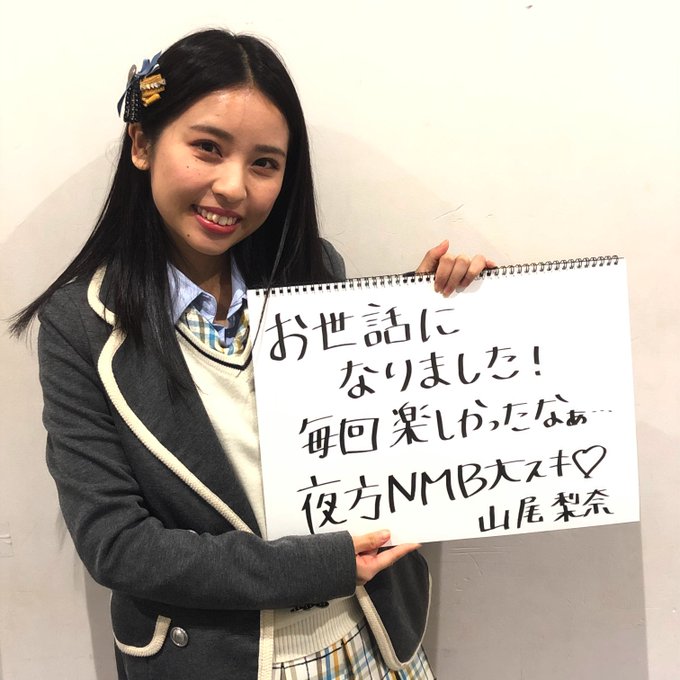 お世話に
なりました!
毎回楽しかったなぁ…
夜方NMB大スキ♡
山尾梨奈